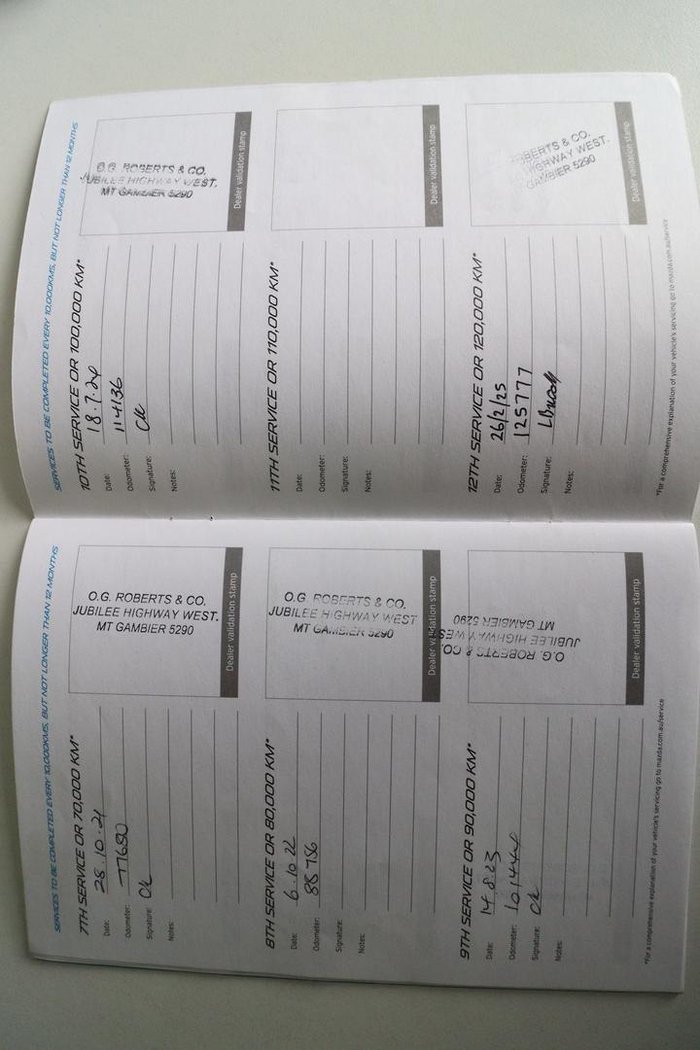 SERVICES TO BE COMPLETED EVERY 10,000KMS, BUT NOT LONGER THAN 12 MONTHS
7TH SERVICE OR 70,000 KM*
Date: 28.10.21
Odometer: 77680
Signature:
Notes:
O.G. ROBERTS & CO.
JUBILEE HIGHWAY WEST.
MT GAMBIER 5290
Dealer validation stamp
8TH SERVICE OR 80,000 KM*
Date: 6.10.22
Odometer: 88756
Signature:
Notes:
O.G. ROBERTS & CO.
JUBILEE HIGHWAY WEST
MT GAMBIER 5290
Dealer validation stamp
9TH SERVICE OR 90,000 KM*
Date: 14.8.23
Odometer: 101444
Signature:
Notes:
O.G. ROBERTS & CO.
JUBILEE HIGHWAY WEST
MT GAMBIER 5290
Dealer validation stamp
*For a comprehensive explanation of your vehicle's servicing go to mazda.com.au/service
SERVICES TO BE COMPLETED EVERY 10,000KMS, BUT NOT LONGER THAN 12 MONTHS
10TH SERVICE OR 100,000 KM*
Date: 18.7.24
Odometer: 114136
Signature:
Notes:
O.G. ROBERTS & CO.
JUBILEE HIGHWAY WEST.
MT GAMBIER 5290
Dealer validation stamp
11TH SERVICE OR 110,000 KM*
Date:
Odometer:
Signature:
Notes:
Dealer validation stamp
12TH SERVICE OR 120,000 KM*
Date: 26/2/25
Odometer: 125777
Signature:
Notes:
ROBERTS & CO.
HIGHWAY WEST.
GAMBIER 5290
Dealer validation stamp
*For a comprehensive explanation of your vehicle's servicing go to mazda.com.au/service